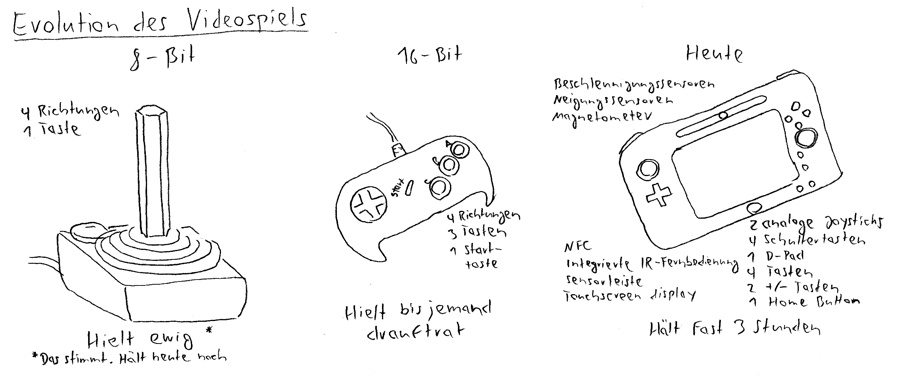 Evolution des Videospiels
8-Bit
4 Richtungen
1 Taste
Hielt ewig *
*Das stimmt. Hält heute noch
16-Bit
START
A
B
C
4 Richtungen
3 Tasten
1 Start-
taste
Hielt bis jemand
drauftrat
Heute
Beschleunigungssensoren
Neigungssensoren
Magnetometer
NFC
Integrierte IR-Fernbedienung
Sensorleiste
Touchscreen display
2 analoge Joysticks
4 Schultertasten
1 D-Pad
4 Tasten
2 +/- Tasten
1 Home Button
Hält fast 3 Stunden